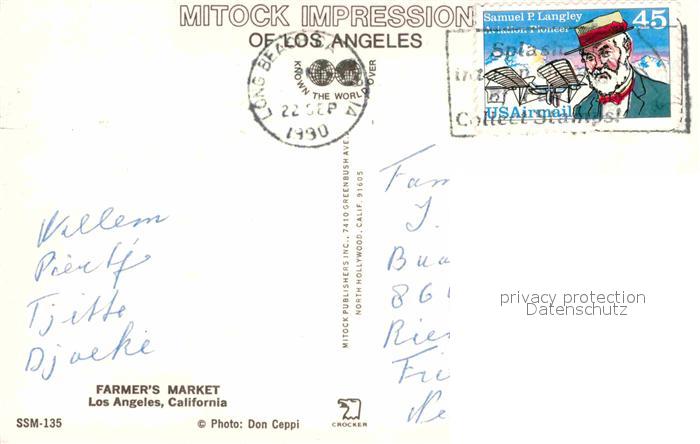 MITOCK IMPRESSION
OF LOS ANGELES
KNOWN THE WORLD OVER
LONG BEACH
22 SEP
1990
Samuel P. Langley
Aviation Pioneer
45
USAirmail
Splash
Collect Stamps!
Willem
Tjitte
Djoeke
MITOCK PUBLISHERS INC., 7410 GREENBUSH AVE.
NORTH HOLLYWOOD, CALIF. 91605
Fam
J.
Bua
86
Rie
Fri
Ne
privacy protection
Datenschutz
FARMER'S MARKET
Los Angeles, California
SSM-135
© Photo: Don Ceppi
CROCKER